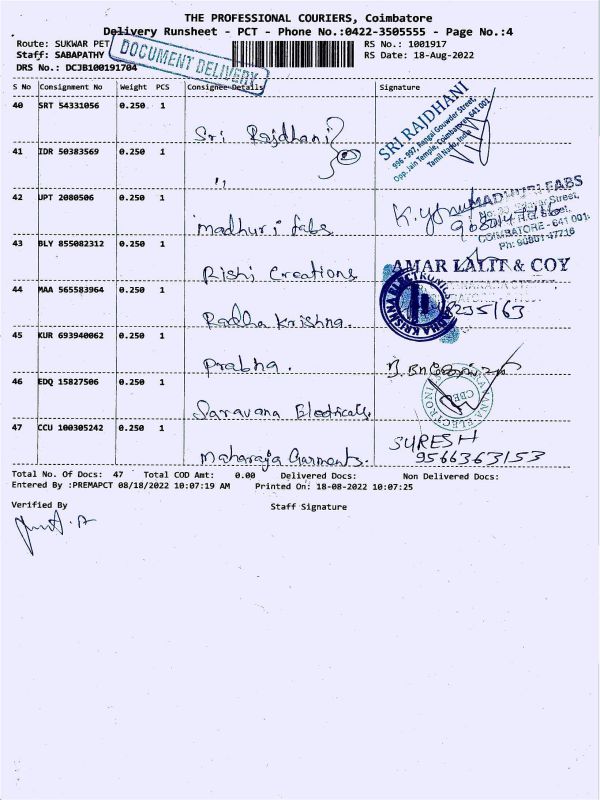 THE PROFESSIONAL COURIERS, Coimbatore
Delivery Runsheet - PCT - Phone No.:0422-3505555 - Page No.:4
Route: SUKWAR PET
RS No.: 1001917
Staff: SABAPATHY
RS Date: 18-Aug-2022
DRS No.: DCJB100191704
DOCUMENT DELIVERY
S No Consignment No Weight PCS Consignee Details Signature
40 SRT 54331056 0.250 1
Sri Rajdhani
SRI RAJDHANI
996 - 997, Rangai Gowder Street,
Opp. Jain Temple, Coimbatore 641 001
Tamil Nadu, India
41 IDR 50383569 0.250 1
,,
42 JPT 2080506 0.250 1
Madhuri fabs
MADHURI FABS
COIMBATORE - 641 001.
Ph: 90801 47716
43 BLY 855082312 0.250 1
Rishi Creations
AMAR LALIT & COY
44 MAA 565583964 0.250 1
Radha Krishna.
RADHA KRISHNA ELECTRONIC
45 KUR 693940062 0.250 1
Prabha.
46 EDQ 15827506 0.250 1
Saravana Electricals
CBE
47 CCU 100305242 0.250 1
Maharaja Garments.
SURESH
9566363153
Total No. Of Docs: 47 Total COD Amt: 0.00 Delivered Docs: Non Delivered Docs:
Entered By :PREMAPCT 08/18/2022 10:07:19 AM Printed On: 18-08-2022 10:07:25
Verified By
Staff Signature